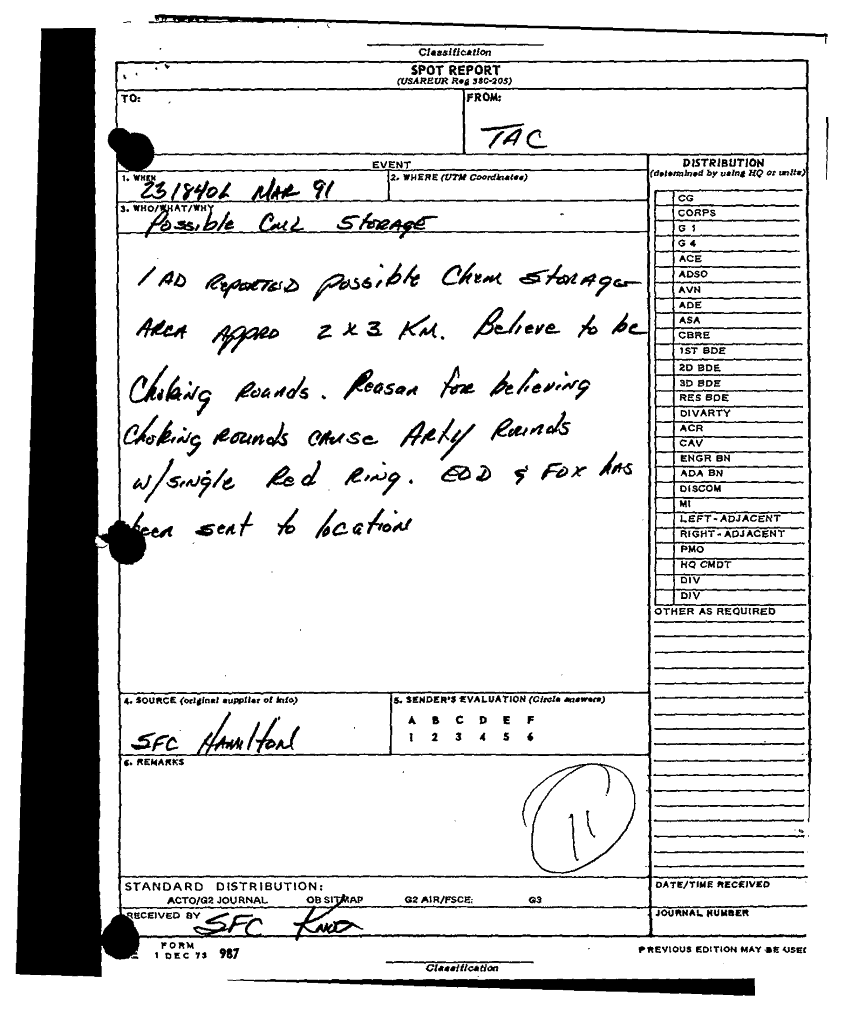 Classification
SPOT REPORT
(USAREUR Reg 380-205)
TO:
FROM:
TAC
EVENT
1. WHEN
231840L MAR 91
2. WHERE (UTM Coordinates)
3. WHO/WHAT/WHY
Possible CML STORAGE
1 AD REPORTED possible Chem STORAGE
AREA APPRO 2 X 3 KM. Believe to be
Choking Rounds. Reason for believing
Choking Rounds CAUSE Arty Rounds
w/single Red Ring. EOD & FOX has
been sent to location
4. SOURCE (original supplier of info)
SFC Hamilton
5. SENDER'S EVALUATION (Circle answers)
A B C D E F
1 2 3 4 5 6
6. REMARKS
11
STANDARD DISTRIBUTION:
ACTO/G2 JOURNAL OB SITMAP G2 AIR/FSCE: G3
RECEIVED BY SFC Knox
FORM
1 DEC 73 987
Classification
DISTRIBUTION
(determined by using HQ or units)
CG
CORPS
G 1
G 4
ACE
ADSO
AVN
ADE
ASA
CBRE
1ST BDE
2D BDE
3D BDE
RES BDE
DIVARTY
ACR
CAV
ENGR BN
ADA BN
DISCOM
MI
LEFT-ADJACENT
RIGHT-ADJACENT
PMO
HQ CMDT
DIV
DIV
OTHER AS REQUIRED
DATE/TIME RECEIVED
JOURNAL NUMBER
PREVIOUS EDITION MAY BE USED